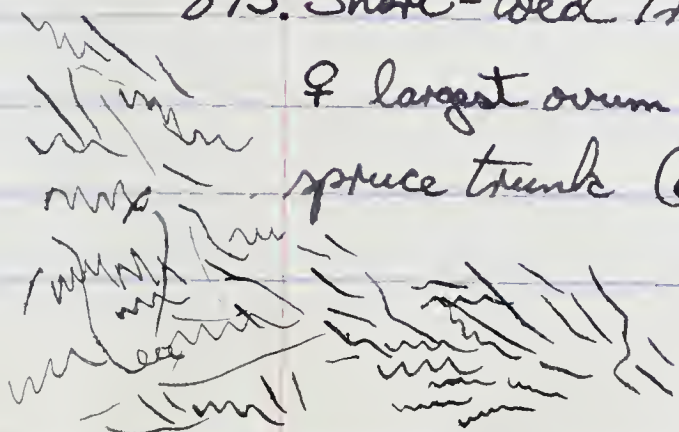 Short-toed
♀ largest ovum
spruce trunk (